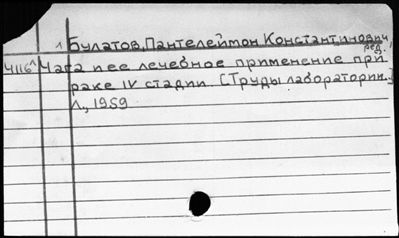 Булатов, Пантелеймон Константинович,
ред.
4116^ Чага и ее лечебное применение при
раке IV стадии. [Труды лаборатории.]
Л., 1959